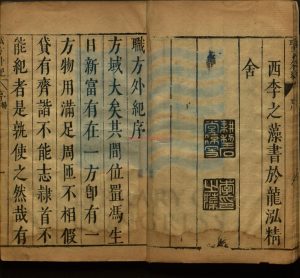 西李之藻書於龍泓精
舍
職方外紀序
方域大矣其間位置馮生
日新富有在一方卽有一
方物用滿足周匝不相假
貸有齊諧不能志隸首不
能紀者是孰使之然哉有